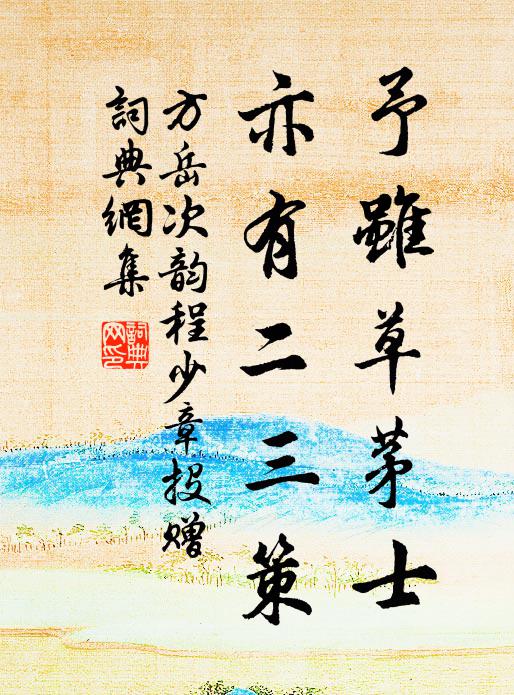 予雖草茅士
亦有二三策
方岳次韵程少章投赠
詞典網集
詞典網印